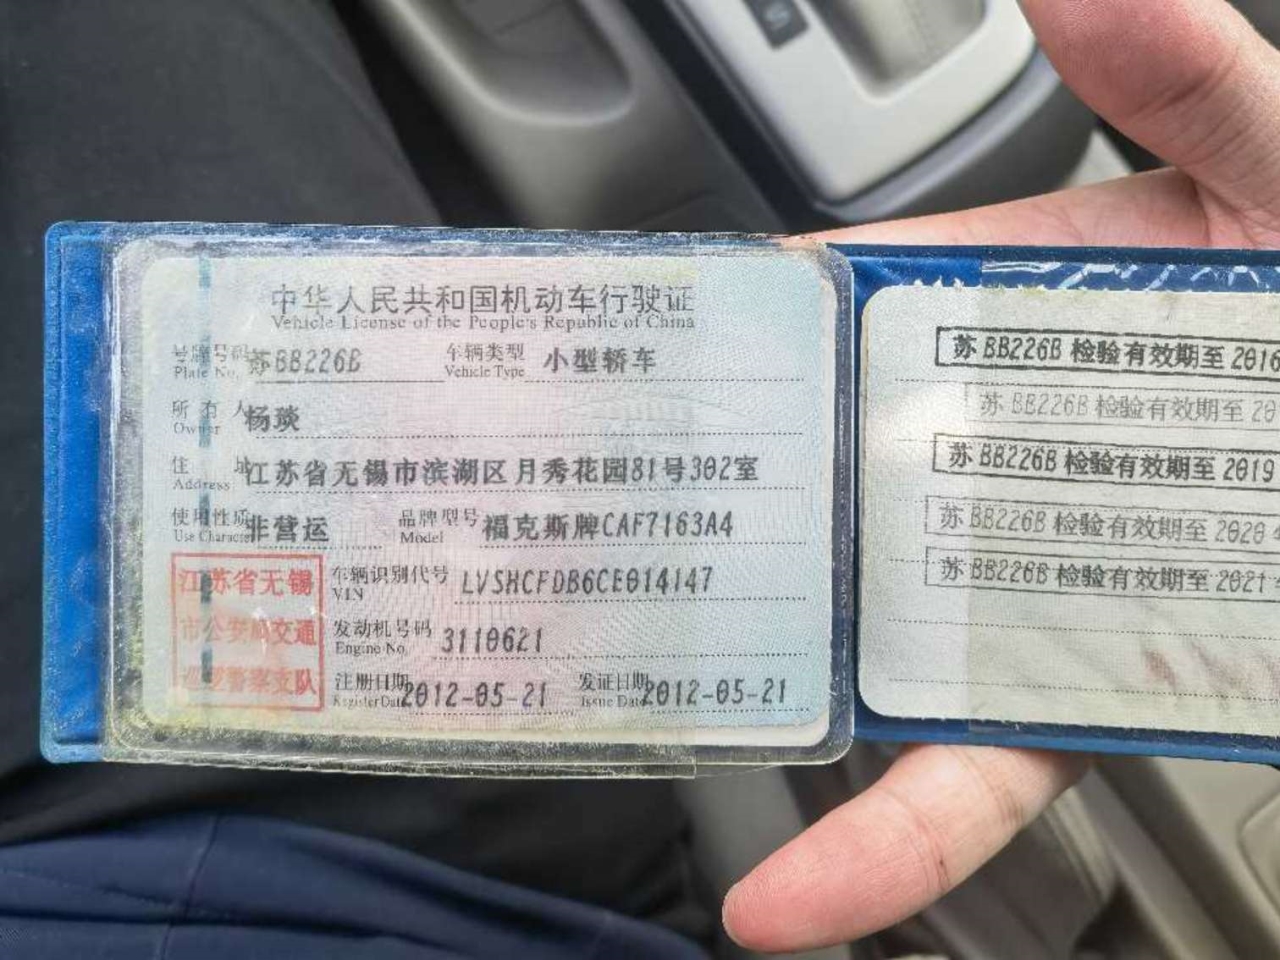 中华人民共和国机动车行驶证
Vehicle License of the People's Republic of China
号牌号码 苏BB226B 车辆类型 小型轿车
Plate No. Vehicle Type
所有人 杨琰
Owner
住址 江苏省无锡市滨湖区月秀花园81号302室
Address
使用性质 非营运 品牌型号 福克斯牌CAF7163A4
Use Character Model
江苏省无锡
市公安局交通
巡逻警察支队
车辆识别代号 LVSHCFDB6CE014147
VIN
发动机号码 3110621
Engine No.
注册日期 2012-05-21 发证日期 2012-05-21
Register Date Issue Date
苏BB226B检验有效期至2016
苏BB226B检验有效期至20
苏BB226B检验有效期至2019
苏BB226B检验有效期至2020
苏BB226B检验有效期至2021